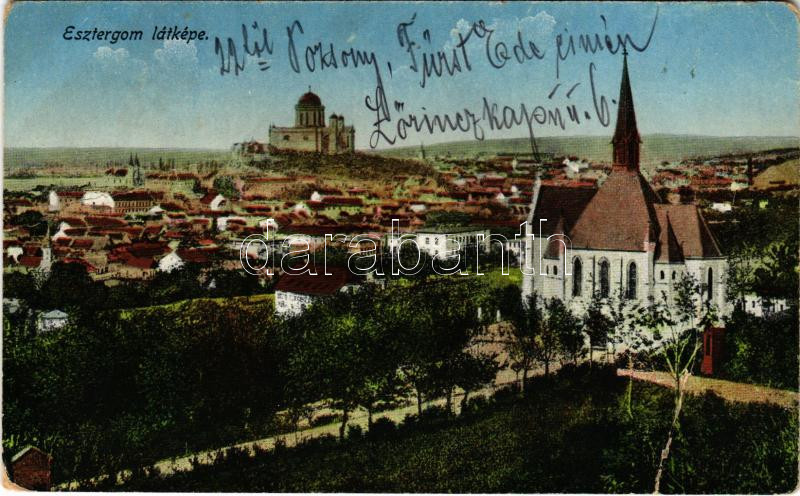 Esztergom látképe.
22től Pozsony, Fürst Ede címén
Lőrinczkapu u. 6.
darabanth